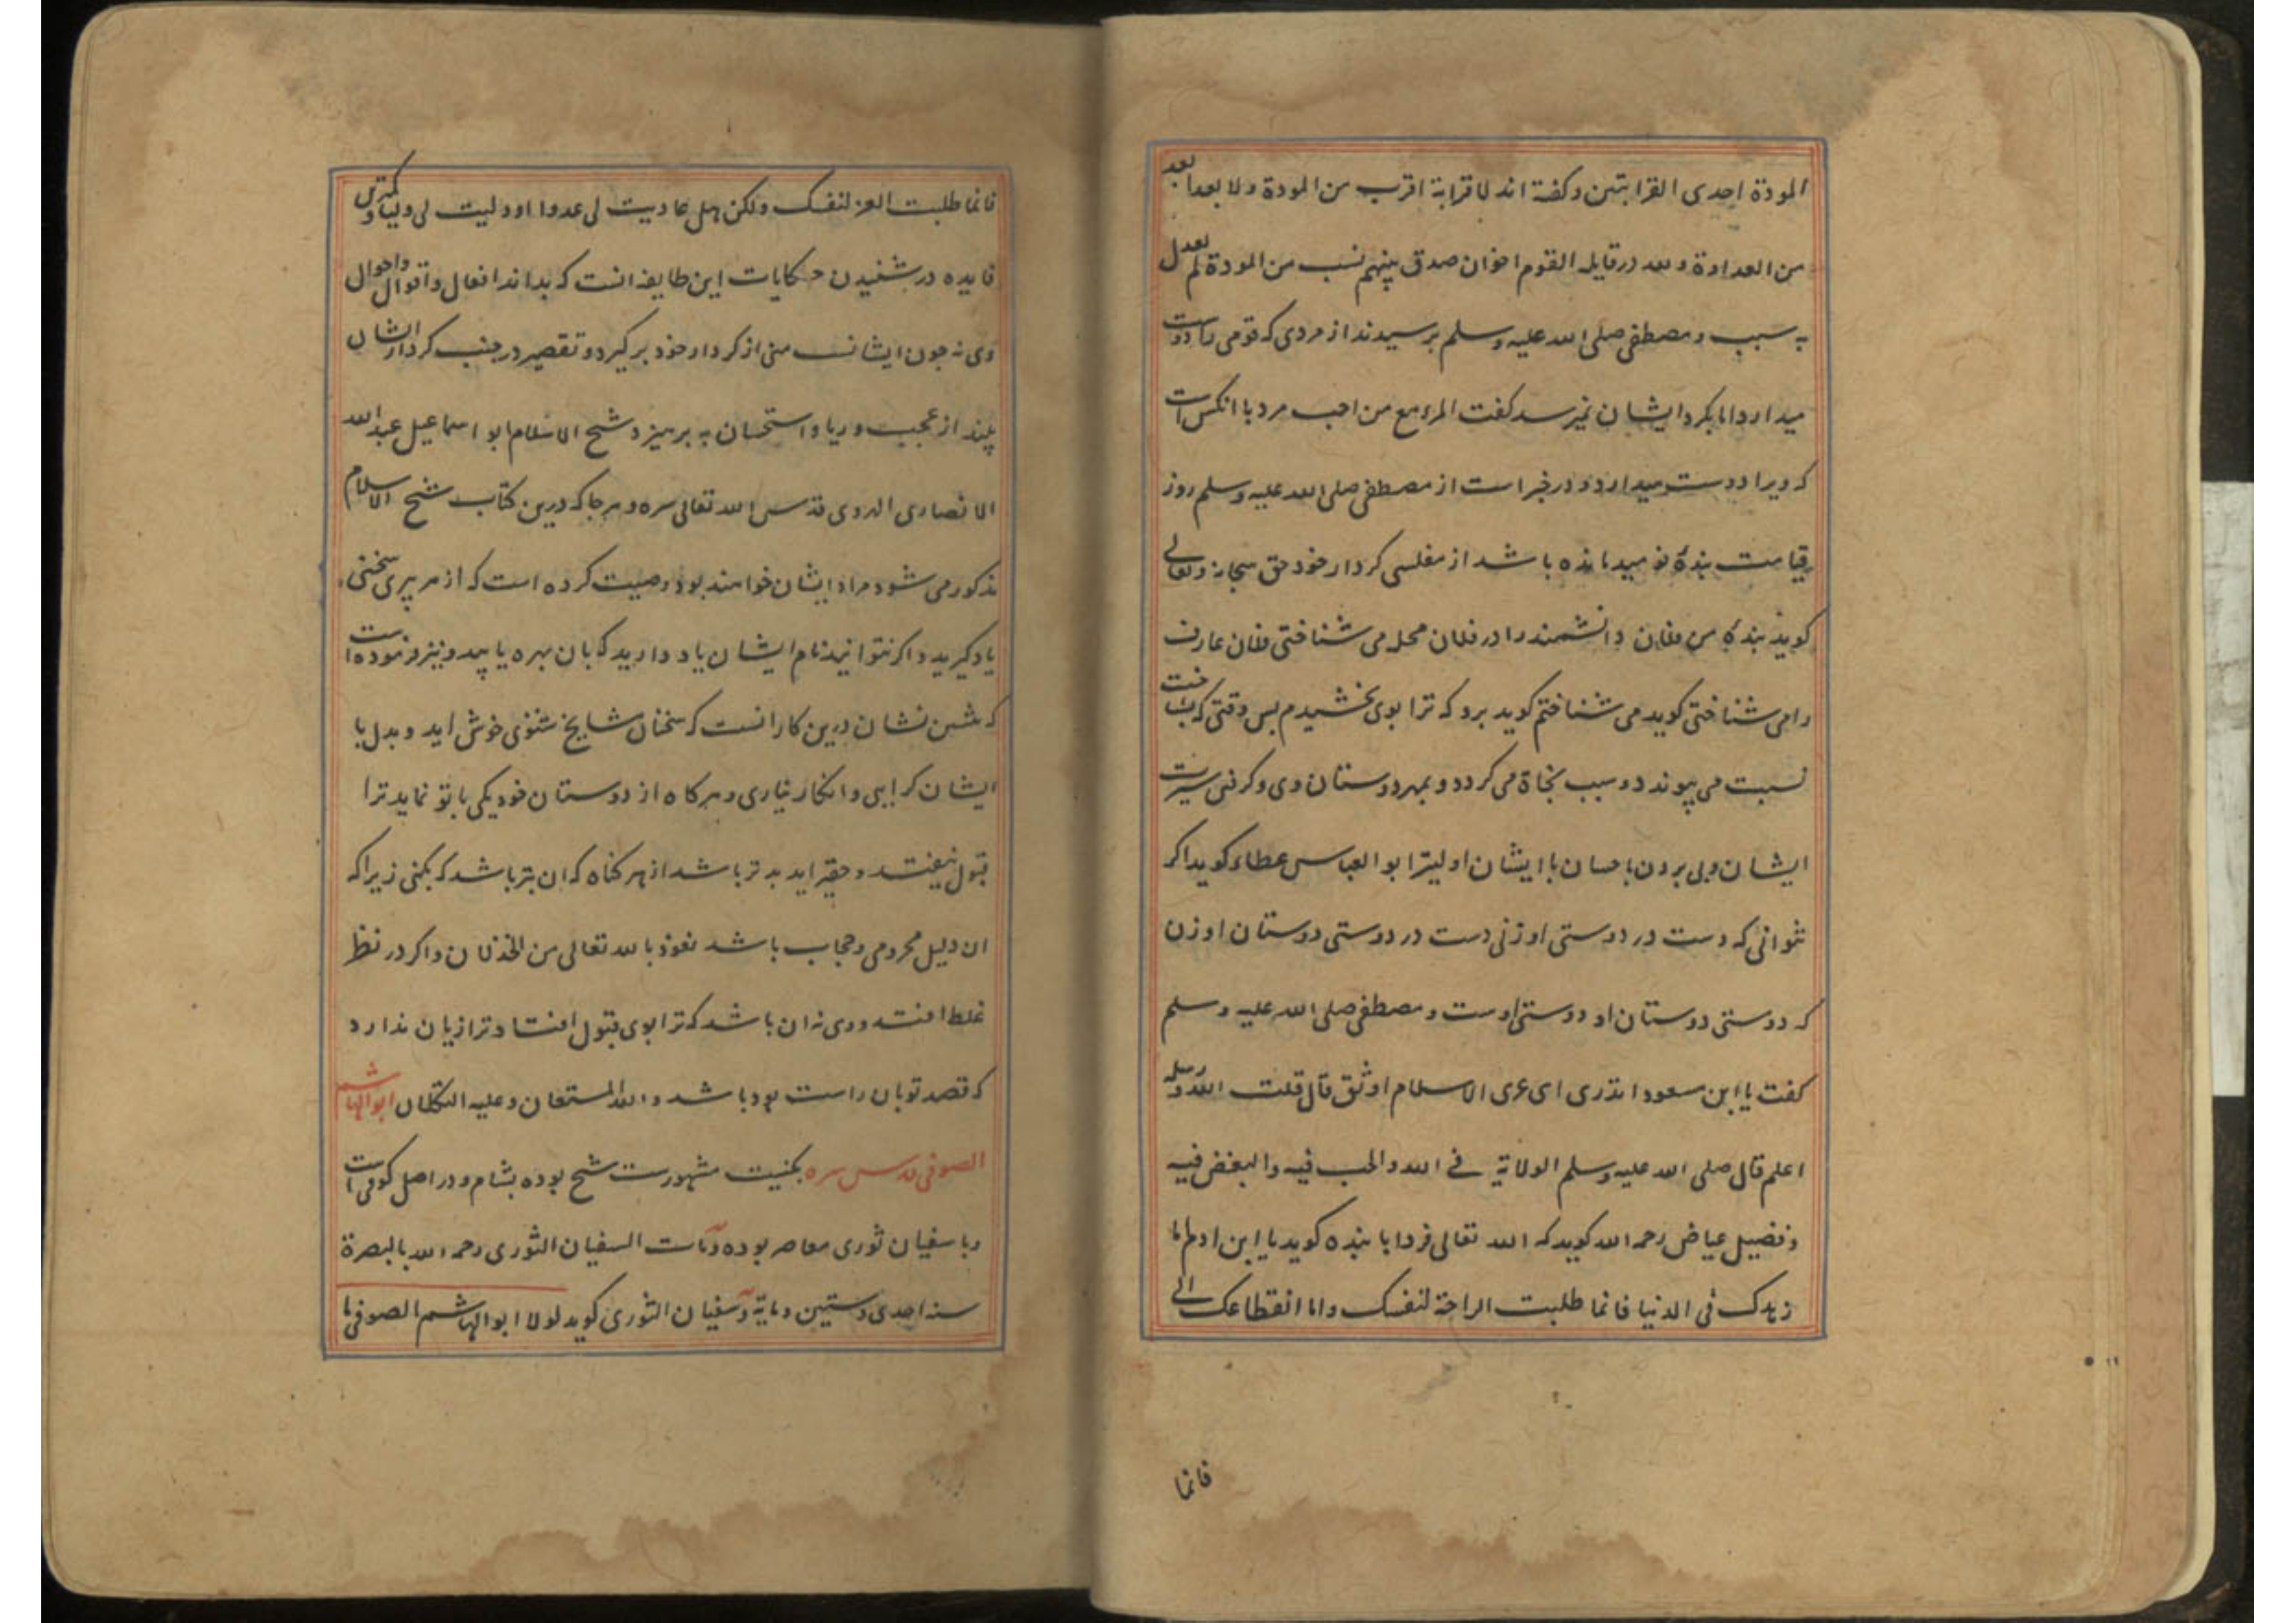 المودة احدی القرابتین و کفته اند لا قرابة اقرب من المودة ولا بعد ابعد
من العداوة و لله در قایله القوم اخوان صدق بینهم نسب من المودة لم یعدل
به سبب و مصطفی صلی الله علیه و سلم پرسیدند از مردی که قومی را دوست
میدارد اما بکرد ایشان نمیرسد کفت المرء مع من احب مرد با انکس است
که ویرا دوست میدارد و در خبر است از مصطفی صلی الله علیه و سلم روز
قیامت بندۀ نومید مانده باشد از مفلسی کردار خود حق سبحانه و تعالی
کوید بندۀ من فلان دانشمند را در فلان محل می شناختی فلان عارف
را می شناختی کوید می شناختم کوید برو که ترا بوی بخشیدم پس وقتی که بشناخت
نسبت می پیوندد و سبب نجاة می کردد و بمهر دوستان وی و کرفتن سیرت
ایشان و پی بردن باحسان با ایشان اولیترا ابو العباس عطاء کوید اکر
نتوانی که دست در دوستی او زنی دست در دوستی دوستان او زن
که دوستی دوستان او دوستی اوست و مصطفی صلی الله علیه و سلم
کفت یا ابن مسعود اتدری ای عری الاسلام اوثق قال قلت الله و رسله
اعلم قال صلی الله علیه و سلم الولایة فی الله و الحب فیه و البغض فیه
و فضیل عیاض رحمه الله کوید که الله تعالی فردا با بنده کوید یا ابن ادم اما
زهدک فی الدنیا فانما طلبت الراحة لنفسک و اما انقطاعک الی
فانما
فانما طلبت العز لنفسک ولکن هل عادیت لی عدوا او ولیت لی ولیا و کمترین
فایده در شنیدن حکایات این طایفه انست که بداند افعال و اقوال و احوال
وی نه چون ایشانست منی از کردار خود بر کیرد و تقصیر در جنب کردار ایشان
بیند از عجب و ریا و استحسان به پرهیزد شیخ الاسلام ابو اسماعیل عبدالله
الانصاری الهروی قدس الله تعالی سره و هر جا که درین کتاب شیخ الاسلام
مذکور می شود مراد ایشان خواهند بود وصیت کرده است که از هر پیری سخنی
یاد کیرید و اکر نتوانید نام ایشان یاد دارید که بان بهره یابید و نیز فرموده است
که مثبن نشان درین کار انست که سخنان مشایخ شنوی خوش اید و بدل با
ایشان کرایی و انکار نیاری و هرکاه از دوستان خود یکی با تو نماید ترا
قبول نیفتد و حقیر اید بدتر باشد از هر کناه که ان بتر باشد که بکنی زیرا که
ان دلیل محرومی و حجاب باشد نعوذ بالله تعالی من الخذلان و اکر در نظر
غلط افتد و وی نه ان باشد که ترا بوی قبول افتاد ترا زیان ندارد
که قصد تو بان راست بود باشد و الله المستعان و علیه التکلان ابو الهاشم
الصوفی قدس سره بکنیت مشهورست شیخ بوده بشام و در اصل کوفی است
و با سفیان ثوری معاصر بوده و مات السفیان الثوری رحمه الله بالبصرة
سنه احدی و ستین و مایة و سفیان الثوری کوید لولا ابو الهاشم الصوفی ما